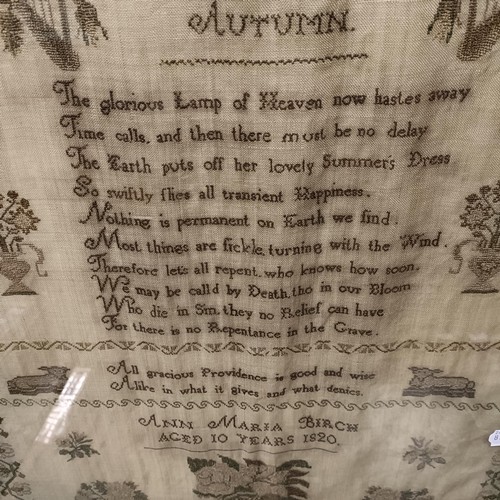 AUTUMN.
The glorious Lamp of Heaven now hastes away
Time calls, and then there must be no delay
The Earth puts off her lovely Summer's Dress
So swiftly flies all transient Happiness.
Nothing is permanent on Earth we find.
Most things are fickle, turning with the Wind.
Therefore let's all repent, who knows how soon,
We may be call'd by Death, tho in our Bloom
Who die in Sin, they no Relief can have
For there is no Repentance in the Grave.
All gracious Providence is good and wise
Alike in what it gives and what denies.
ANN MARIA BIRCH
AGED 10 YEARS 1820.